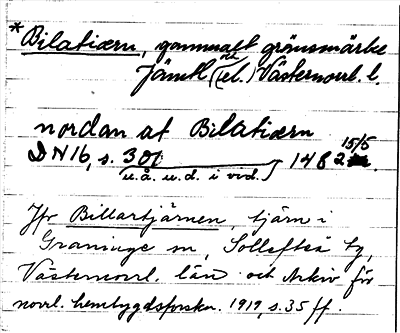 *Bilatiærn, gammalt gränsmärke
Jämtl. (el.) Västernorrl. l.
nordan at Bilatiærn
DN 16, s. 300 1482 15/5
u.å. u.d. i vid.
Jfr Billartjärnen, tjärn i
Graninge sn, Sollefteå tg,
Västernorrl. län och Arkiv för
norrl. hembygdsforskn. 1919, s. 35 ff.